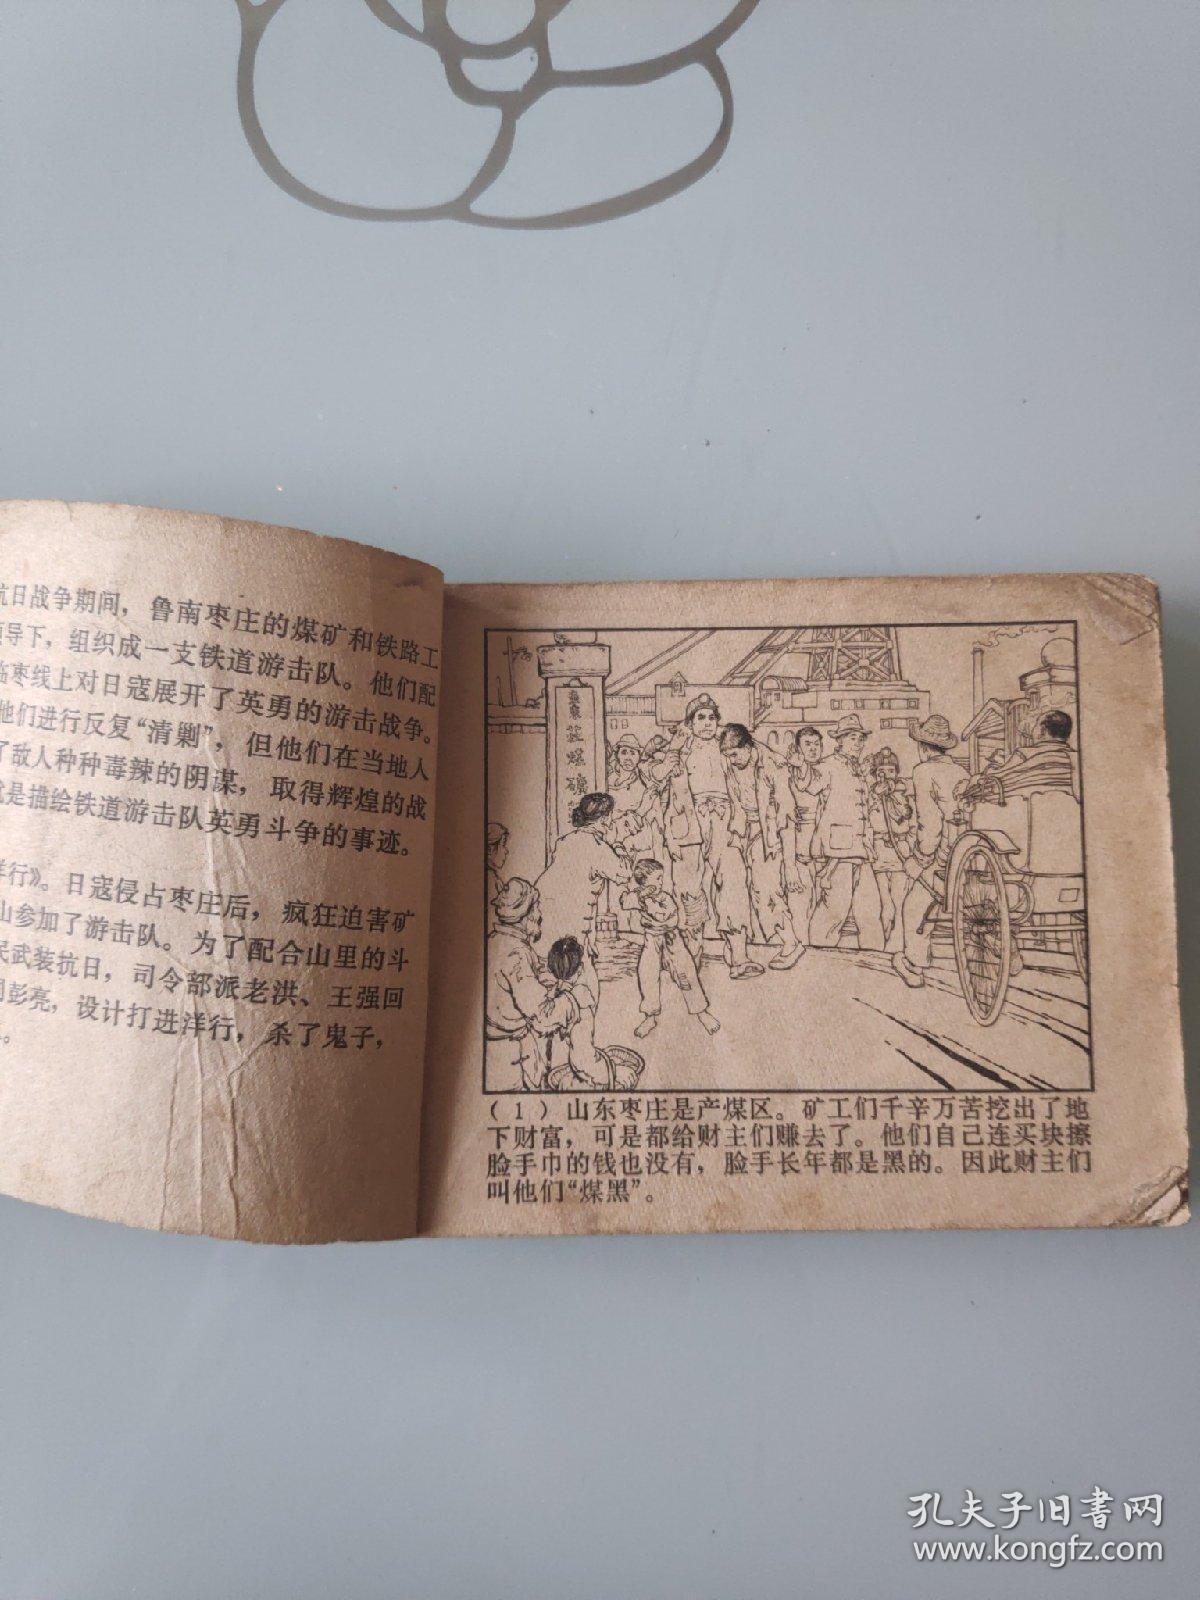 抗日战争期间，鲁南枣庄的煤矿和铁路工
领导下，组织成一支铁道游击队。他们配
临枣线上对日寇展开了英勇的游击战争。
他们进行反复“清剿”，但他们在当地人
了敌人种种毒辣的阴谋，取得辉煌的战
就是描绘铁道游击队英勇斗争的事迹。
洋行》。日寇侵占枣庄后，疯狂迫害矿
山参加了游击队。为了配合山里的斗
民武装抗日，司令部派老洪、王强回
同彭亮，设计打进洋行，杀了鬼子，
。
棗莊煤礦
（1）山东枣庄是产煤区。矿工们千辛万苦挖出了地
下财富，可是都给财主们赚去了。他们自己连买块擦
脸手巾的钱也没有，脸手长年都是黑的。因此财主们
叫他们“煤黑”。
孔夫子旧书网
www.kongfz.com